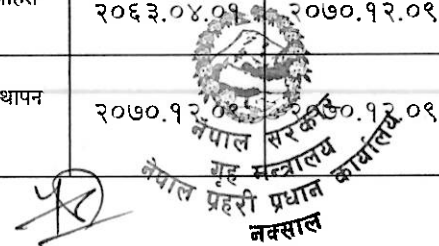 २०६३.०४.०१ २०७०.१२.०९
थापन २०७०.१२.०९ २०७०.१२.०९
नेपाल सरकार
गृह मन्त्रालय
नेपाल प्रहरी प्रधान कार्यालय
नक्साल